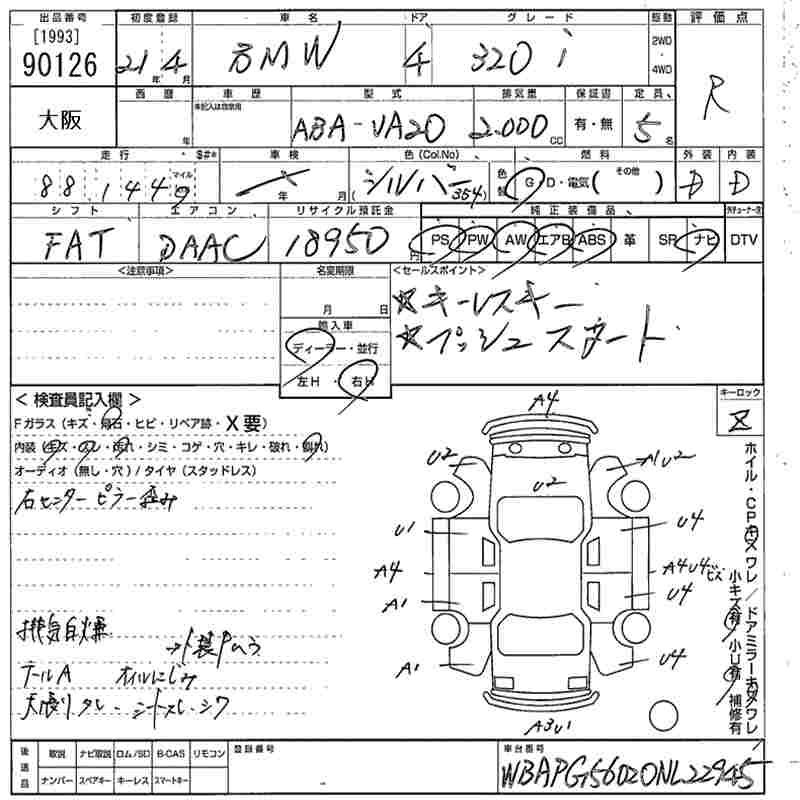 出品番号 初度登録 車名 ドア グレード 駆動 評価点
[1993]
90126 21年4月 BMW 4 320i 2WD・4WD R
大阪 西暦 車歴 型式 排気量 保証書 定員
年 未記入は自家用 ABA-VA20 2.000cc 有・無 5名
走行 $#* 車検 色(Col.No) 燃料 外装 内装
88,144 マイル 年 月 シルバー(354) 色替 G・D・電気(その他) D D
シフト エアコン リサイクル預託金 純正装備品 外チューナー改
FAT DAAC 18950円 PS PW AW エアB ABS 革 SR ナビ DTV
<注意事項> 名変期限 <セールスポイント>
月 日 ☆キーレスキー
輸入車 ☆プッシュスタート
ディーラー・並行
左H・右H
<検査員記入欄> キーロック
Fガラス(キズ・飛石・ヒビ・リペア跡・X要)
内装(キズ・スレ・汚れ・シミ・コゲ・穴・キレ・破れ・剥れ)
オーディオ(無し・穴)/タイヤ(スタッドレス)
右センターピラー歪み
A4
U2 U2 A1U2
U1 U4
A4 A4U4ビズ
A1 U4
A1 U4
A3U1
ホイル・CPキズワレ/ドアミラーキズワレ
小キズ有 小U有 補修有
テールA オイルにじみ
天張りタレ シートスレ・シワ
後送品 取説 ナビ取説 ロム/SD B-CAS リモコン 登録番号 車台番号
ナンバー スペアキー キーレス スマートキー WBAPG56020NL22945